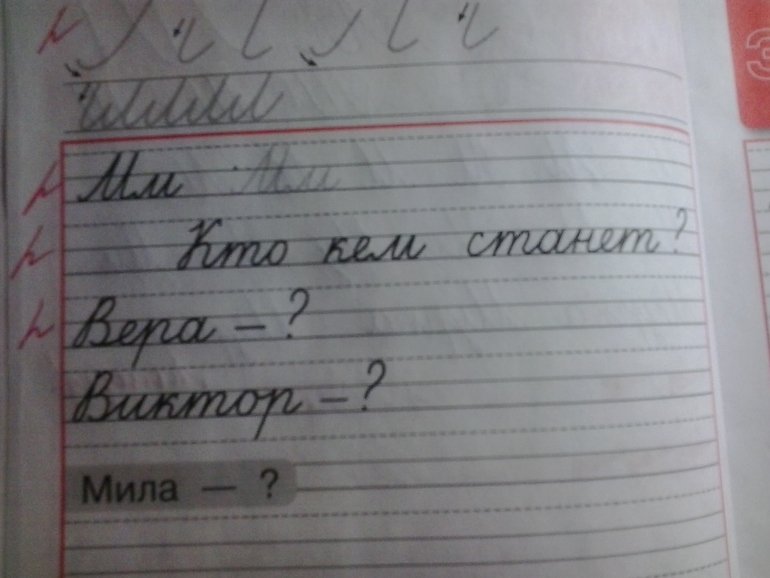 Мм Мм
Кто кем станет?
Вера – ?
Виктор – ?
Мила — ?